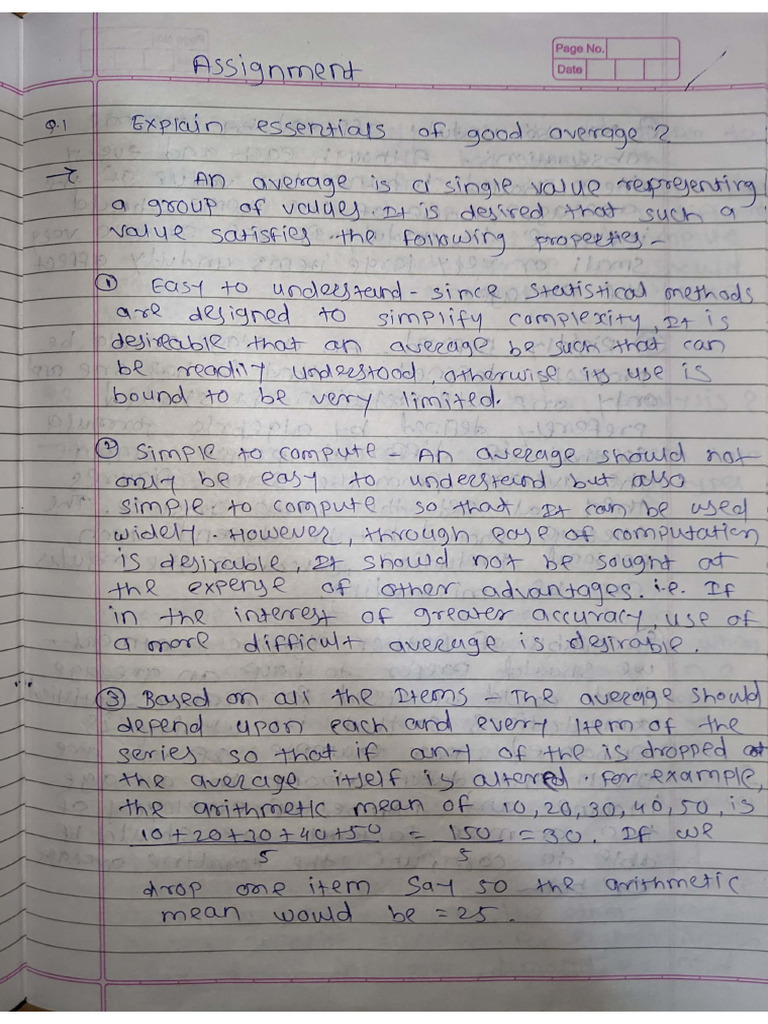 Page No.
Date
Assignment
Q.1 Explain essentials of good average ?
→ An average is a single value representing
a group of values. It is desired that such a
value satisfies the following properties -
① Easy to understand - since statistical methods
are designed to simplify complexity, It is
desireable that an average be such that can
be readily understood, otherwise its use is
bound to be very limited.
② Simple to compute - An average should not
only be easy to understand but also
simple to compute so that It can be used
widely. However, through ease of computation
is desirable, It should not be sought at
the expense of other advantages. i.e. If
in the interest of greater accuracy, use of
a more difficult average is desirable.
③ Based on all the Items - The average should
depend upon each and every Item of the
series so that if any of the is dropped
the average itself is altered. for example,
the arithmetic mean of 10, 20, 30, 40, 50, is
10+20+30+40+50 / 5 = 150 / 5 = 30. If we
drop one item Say 50 the arithmetic
mean would be = 25.